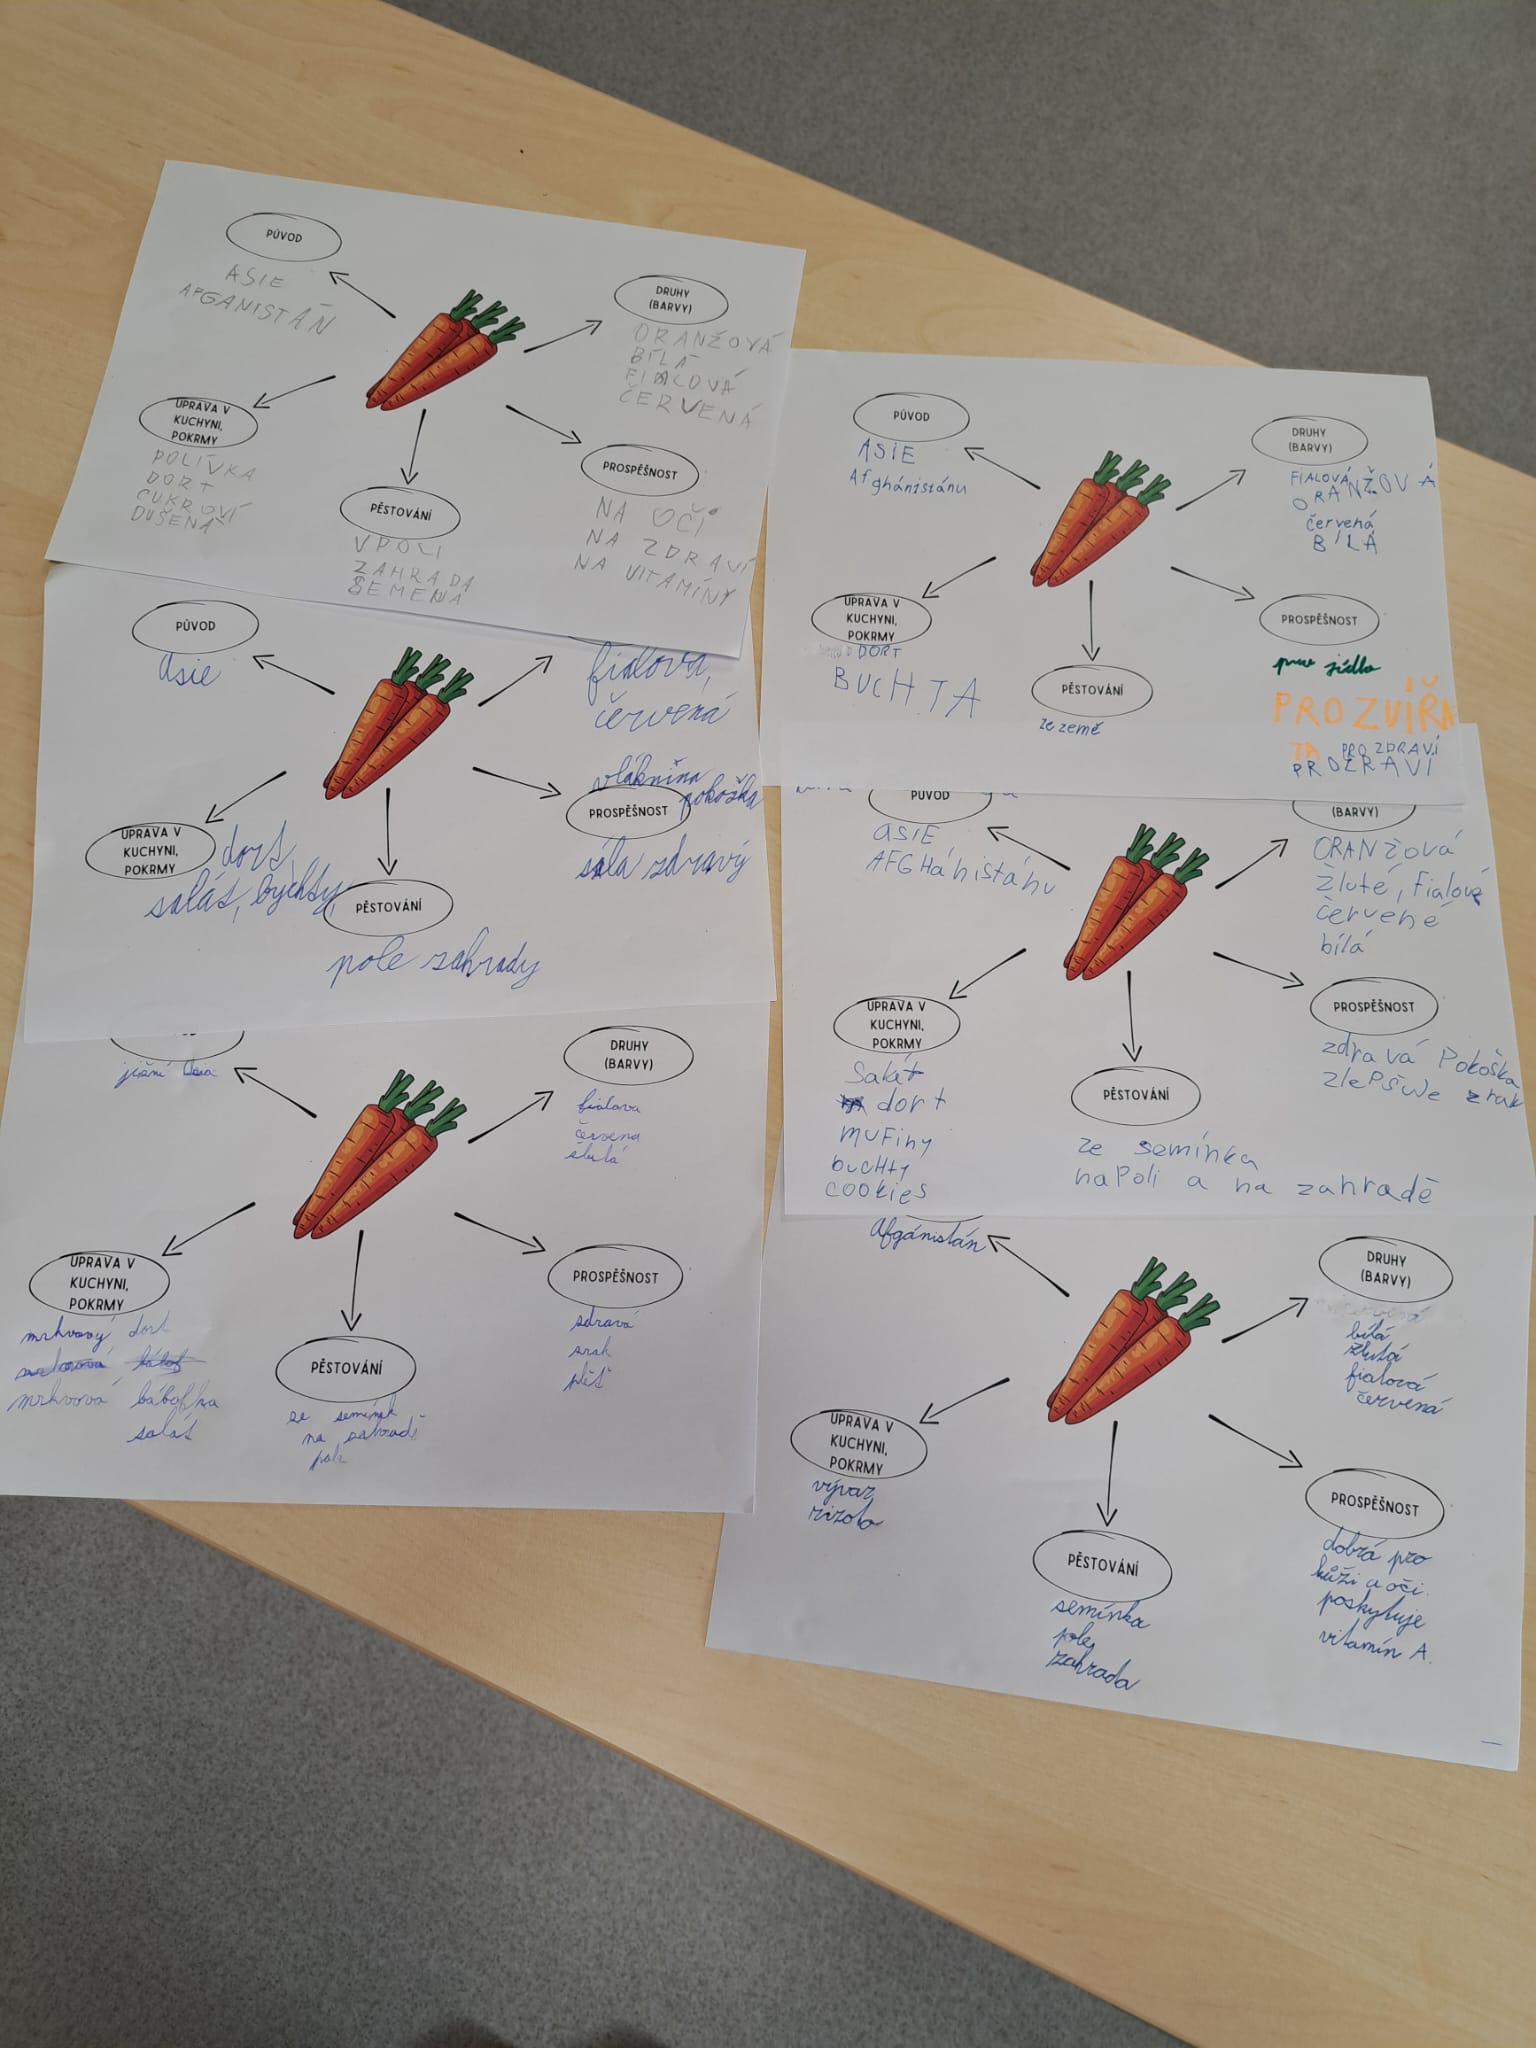 PŮVOD
ASIE
AFGANISTÁN
DRUHY
(BARVY)
ORANŽOVÁ
BÍLÁ
FIALOVÁ
ČERVENÁ
ÚPRAVA V
KUCHYNI,
POKRMY
POLÍVKA
DORT
CUKROVÍ
DUŠENÁ
PĚSTOVÁNÍ
V POLI
ZAHRADA
SEMENA
PROSPĚŠNOST
NA OČI
NA ZDRAVÍ
NA VITAMÍNY
PŮVOD
ASIE
Afghánistánu
DRUHY
(BARVY)
FIALOVÁ
ORANŽOVÁ
červená
BÍLÁ
ÚPRAVA V
KUCHYNI,
POKRMY
DORT
BUCHTA
PĚSTOVÁNÍ
ze země
PROSPĚŠNOST
jídlo
PRO ZVÍŘA
TA PRO ZDRAVÍ
PROZRAVÍ
PŮVOD
asie
fialová,
červená
ÚPRAVA V
KUCHYNI,
POKRMY
dort,
salát, bychty,
PĚSTOVÁNÍ
pole zahrady
vláknina
pokožka
PROSPĚŠNOST
sála zdravý
PŮVOD
ASIE
AFGHánistánu
(BARVY)
ORANžová
žluté, Fialová
červené
bílá
ÚPRAVA V
KUCHYNI,
POKRMY
Salát
dort
MUFiny
bucHty
COOKiES
PĚSTOVÁNÍ
ze semínka
naPoli a na zahradě
PROSPĚŠNOST
zdravá Pokožka
zlePšuje zrak
jižní
DRUHY
(BARVY)
fialova
červena
žlutá
ÚPRAVA V
KUCHYNI,
POKRMY
mrkvový dort
mrkvová bábofka
salát
PĚSTOVÁNÍ
ze semínek
na zahradě
PROSPĚŠNOST
zdravá
zrak
pleť
Afgánistán
DRUHY
(BARVY)
bílá
žlutá
fialová
červená
ÚPRAVA V
KUCHYNI,
POKRMY
vývar
rizoto
PĚSTOVÁNÍ
semínka
pole,
zahrada
PROSPĚŠNOST
dobrá pro
kůži a oči.
poskytuje
vitamín A.